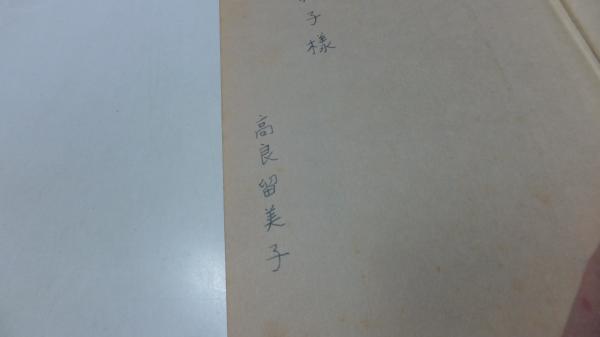 子様
高良留美子